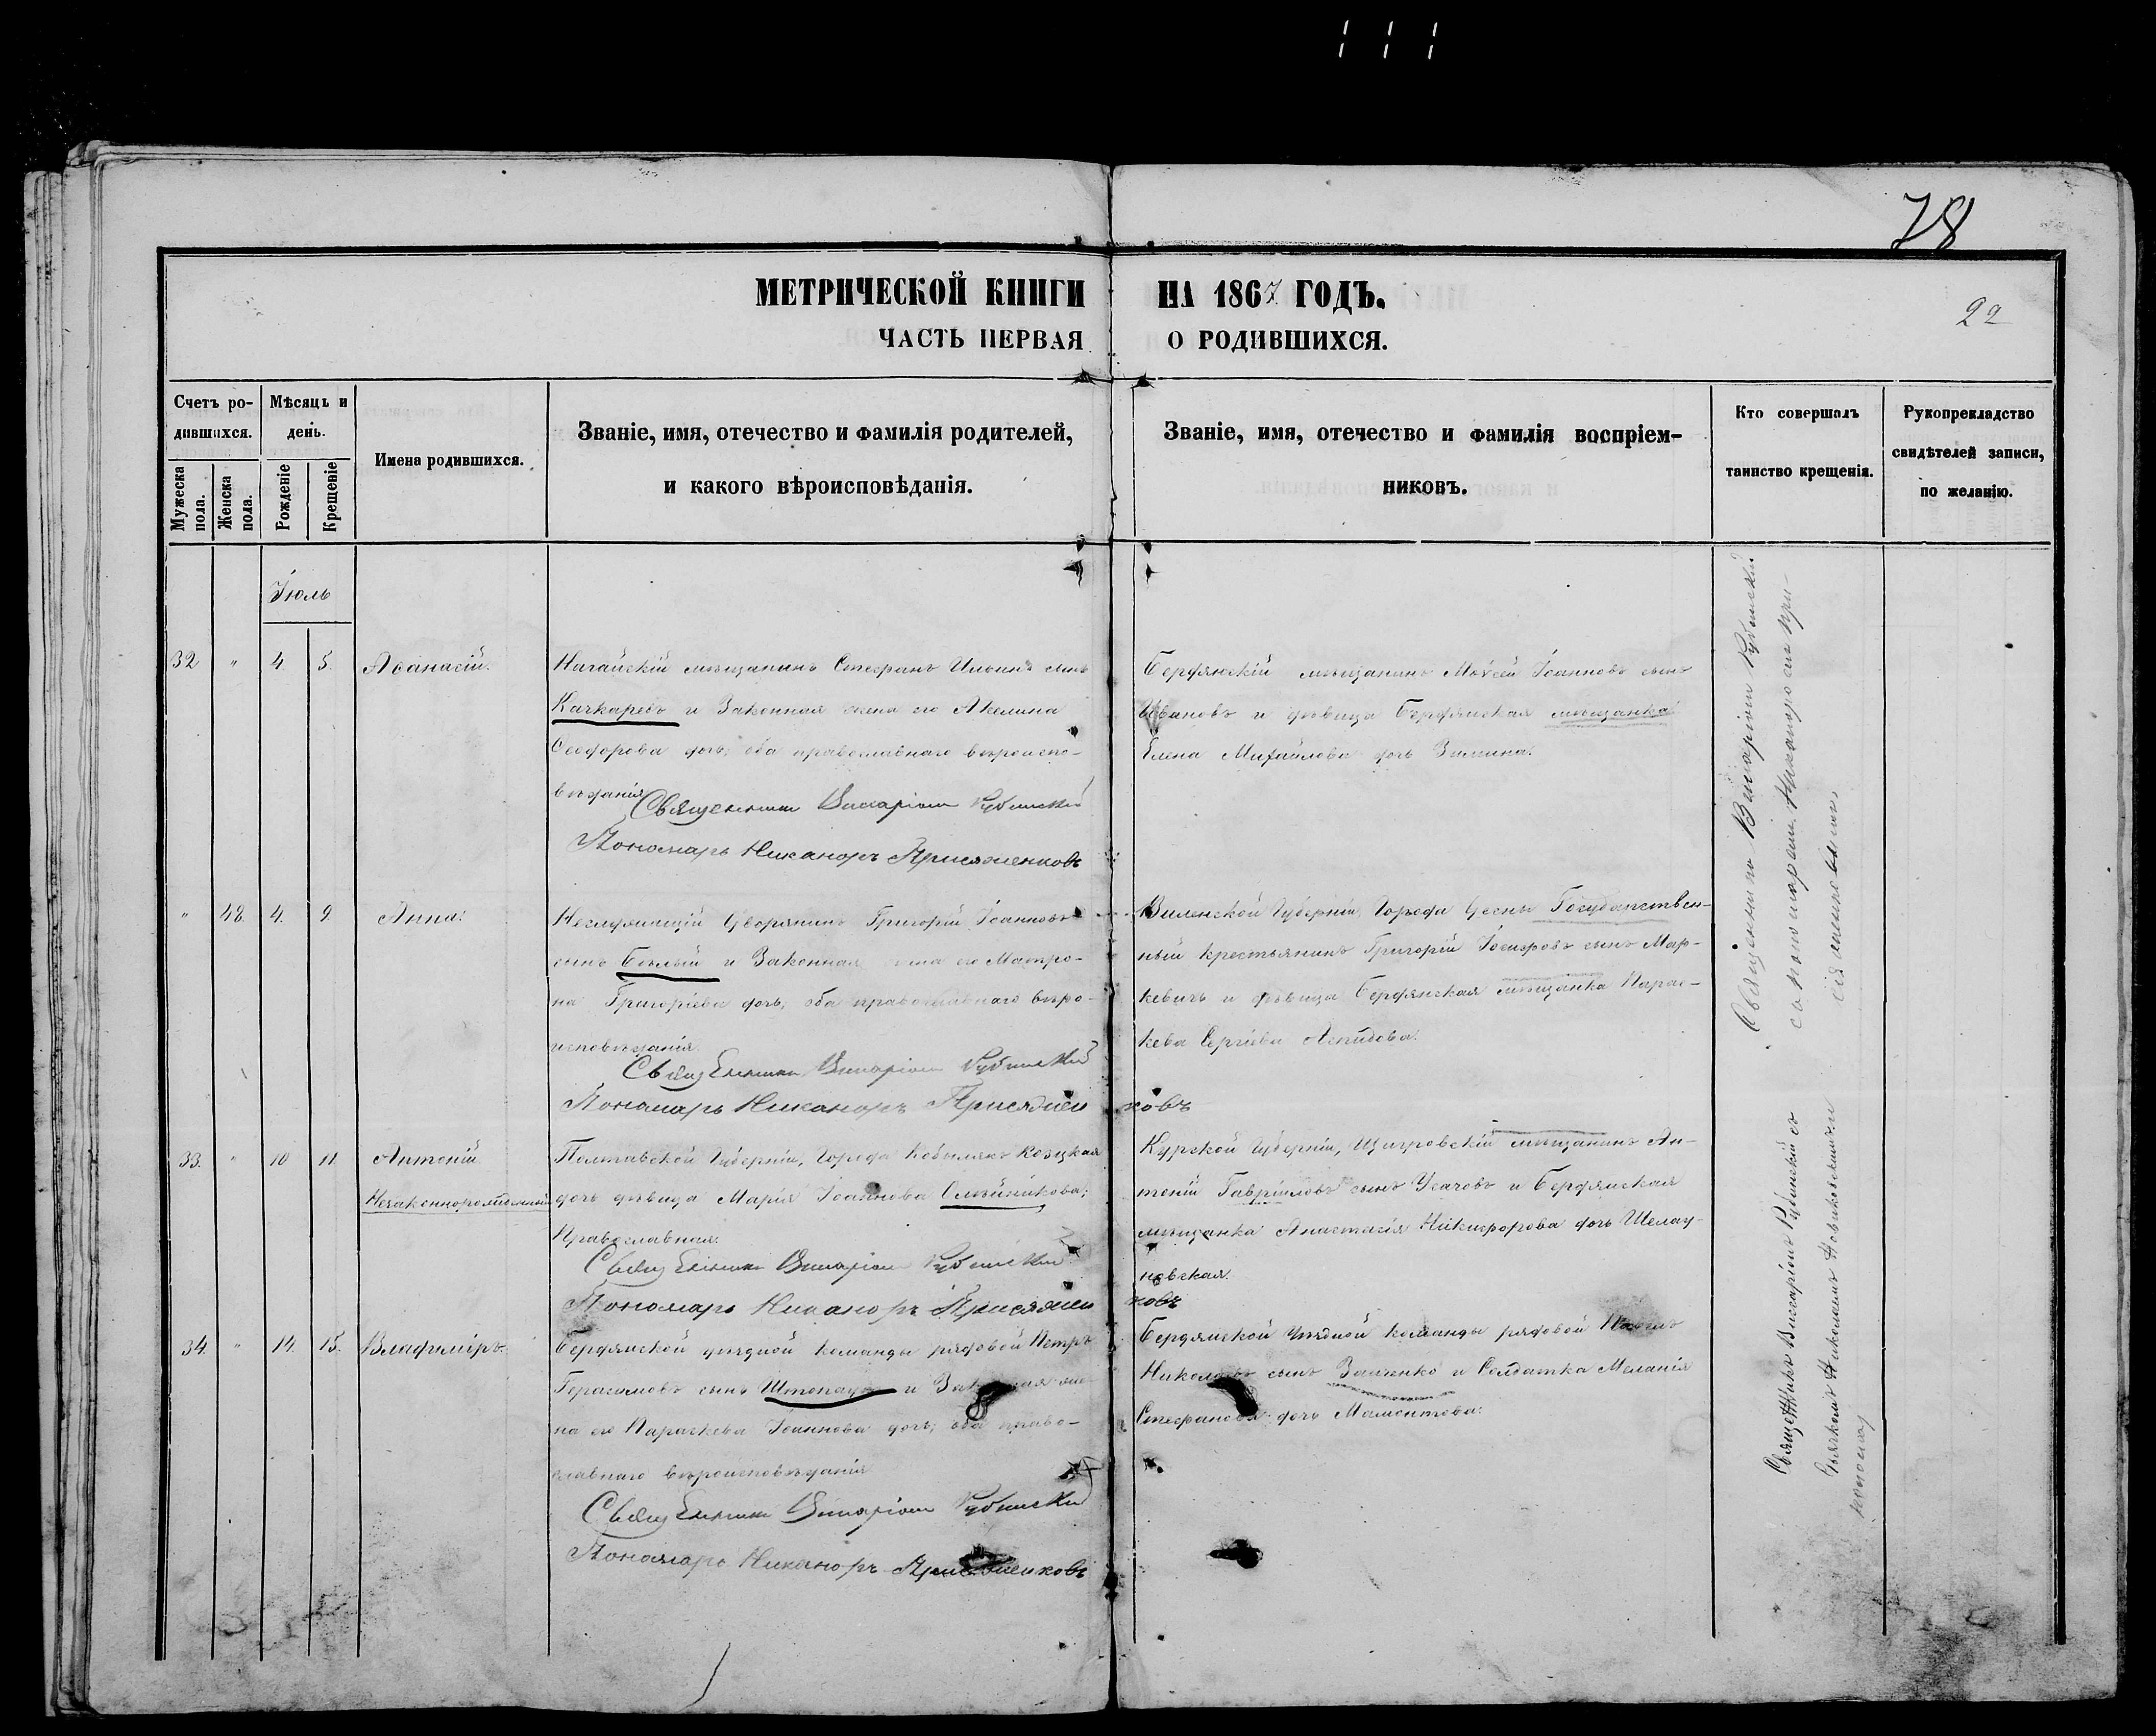 78
МЕТРИЧЕСКОЙ КНИГИ НА 1867 ГОДЪ.
22
ЧАСТЬ ПЕРВАЯ О РОДИВШИХСЯ.
Счетъ родившихся.
Мужеска пола.
Женска пола.
Мѣсяцъ и день.
Рожденіе
Крещеніе
Имена родившихся.
Званіе, имя, отечество и фамилія родителей,
и какого вѣроисповѣданія.
Званіе, имя, отечество и фамилія воспріем-
никовъ.
Кто совершалъ
таинство крещенія.
Рукоприкладство
свидѣтелей записи,
по желанію.
Іюль
32 " 4 5. Аѳанасій.
Нагайскій мѣщанинъ Стефанъ Ильинъ сынъ
Качкаревъ и Законная жена его Акелина
Ѳеодорова дочь; оба православнаго вѣроиспо-
вѣданія
Священникъ Виссаріонъ Рубинскій
Пономарь Никаноръ Присяженковъ
Бердянскій мѣщанинъ Моѵсей Іоанновъ сынъ
Ивановъ и дѣвица Бердянская мѣщанка
Елена Михайлова дочь Зимина.
" 48. 4. 9. Анна.
Неслужащій Дворянинъ Григорій Іоанновъ
сынъ Бѣлый и Законная жена его Матро-
на Григоріева дочь; оба православнаго вѣро-
исповѣданія.
Священникъ Виссаріонъ Рубинскій
Пономарь Никаноръ Присяжен ковъ
Виленской Губерніи, Города Десны Государствен-
ный крестьянинъ Григорій Іосифовъ сынъ Мар-
кевичъ и дѣвица Бердянская мѣщанка Парас-
кева Сергіева
33. " 10 11. Антоній
Незаконнорожденный
Полтавской Губерніи, Города Кобылякъ Козцкая
дочь дѣвица Марія Іоаннова Олейникова;
Православная.
Священникъ Виссаріонъ Рубинскій
Пономарь Никаноръ Присяжен ковъ
Курской Губерніи, Щигровскій мѣщанинъ Ан-
тоній Гавріиловъ сынъ Усачовъ и Бердянская
мѣщанка Анастасія Никифорова дочь Шелау-
новская.
34. " 14. 15. Владиміръ.
Бердянской уѣздной команды рядовой Петръ
Герасимовъ сынъ и Законная же-
на его Параскева Іоаннова дочь; оба право-
славнаго вѣроисповѣданія
Священникъ Виссаріонъ Рубинскій
Пономарь Никаноръ Присяженковъ
Бердянской уѣздной команды рядовой
Николаевъ сынъ Заиченко и Солдатка Меланія
Стефанова дочь Мамонтова.
Священникъ Виссаріонъ Рубинскій
съ пономаремъ Никаноромъ При-
сяженковымъ.
Священникъ Виссаріонъ Рубинскій съ
Дьячкомъ Николаемъ